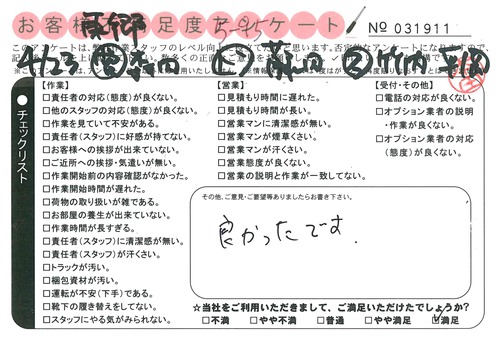 お客様満足度アンケート
No 031911
4/27
【作業】
□責任者の対応（態度）が良くない。
□他のスタッフの対応（態度）が良くない。
□作業を見ていて不安がある。
□責任者（スタッフ）に好感が持てない。
□お客様への挨拶が出来ていない。
□ご近所への挨拶・気遣いが無い。
□作業開始前の内容確認がなかった。
□作業開始時間が遅れた。
□荷物の取り扱いが雑である。
□お部屋の養生が出来ていない。
□作業時間が長すぎる。
□責任者（スタッフ）に清潔感が無い。
□責任者（スタッフ）が汗くさい。
□トラックが汚い。
□梱包資材が汚い。
□運転が不安（下手）である。
□靴下の履き替えをしてない。
□スタッフにやる気がみられない。
【営業】
□見積もり時間に遅れた。
□見積もり時間が長い。
□営業マンに清潔感が無い。
□営業マンが煙草くさい。
□営業マンが汗くさい。
□営業態度が良くない。
□営業の説明と作業が一致してない。
【受付・その他】
□電話の対応が良くない。
□オプション業者の説明
・作業が良くない。
□オプション業者の対応
（態度）が良くない。
チェックリスト
その他、ご意見・ご要望等ありましたらお書き下さい。
良かったです.
☆当社をご利用いただきまして、ご満足いただけたでしょうか？
□不満 □やや不満 □普通 □やや満足 □満足